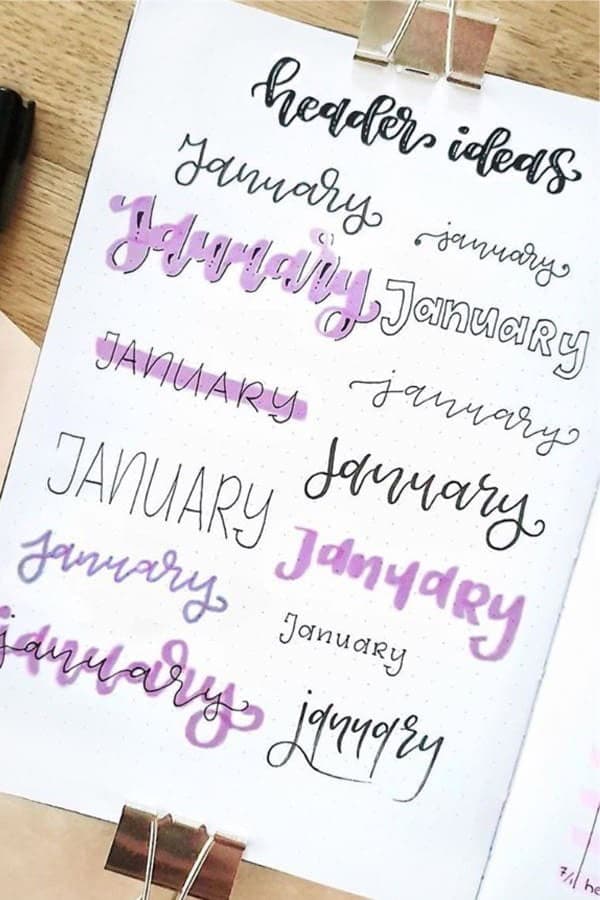 header ideas
January
january
January
January
JANUARY
january
JANUARY
january
january
January
January
january
january
7/1 he